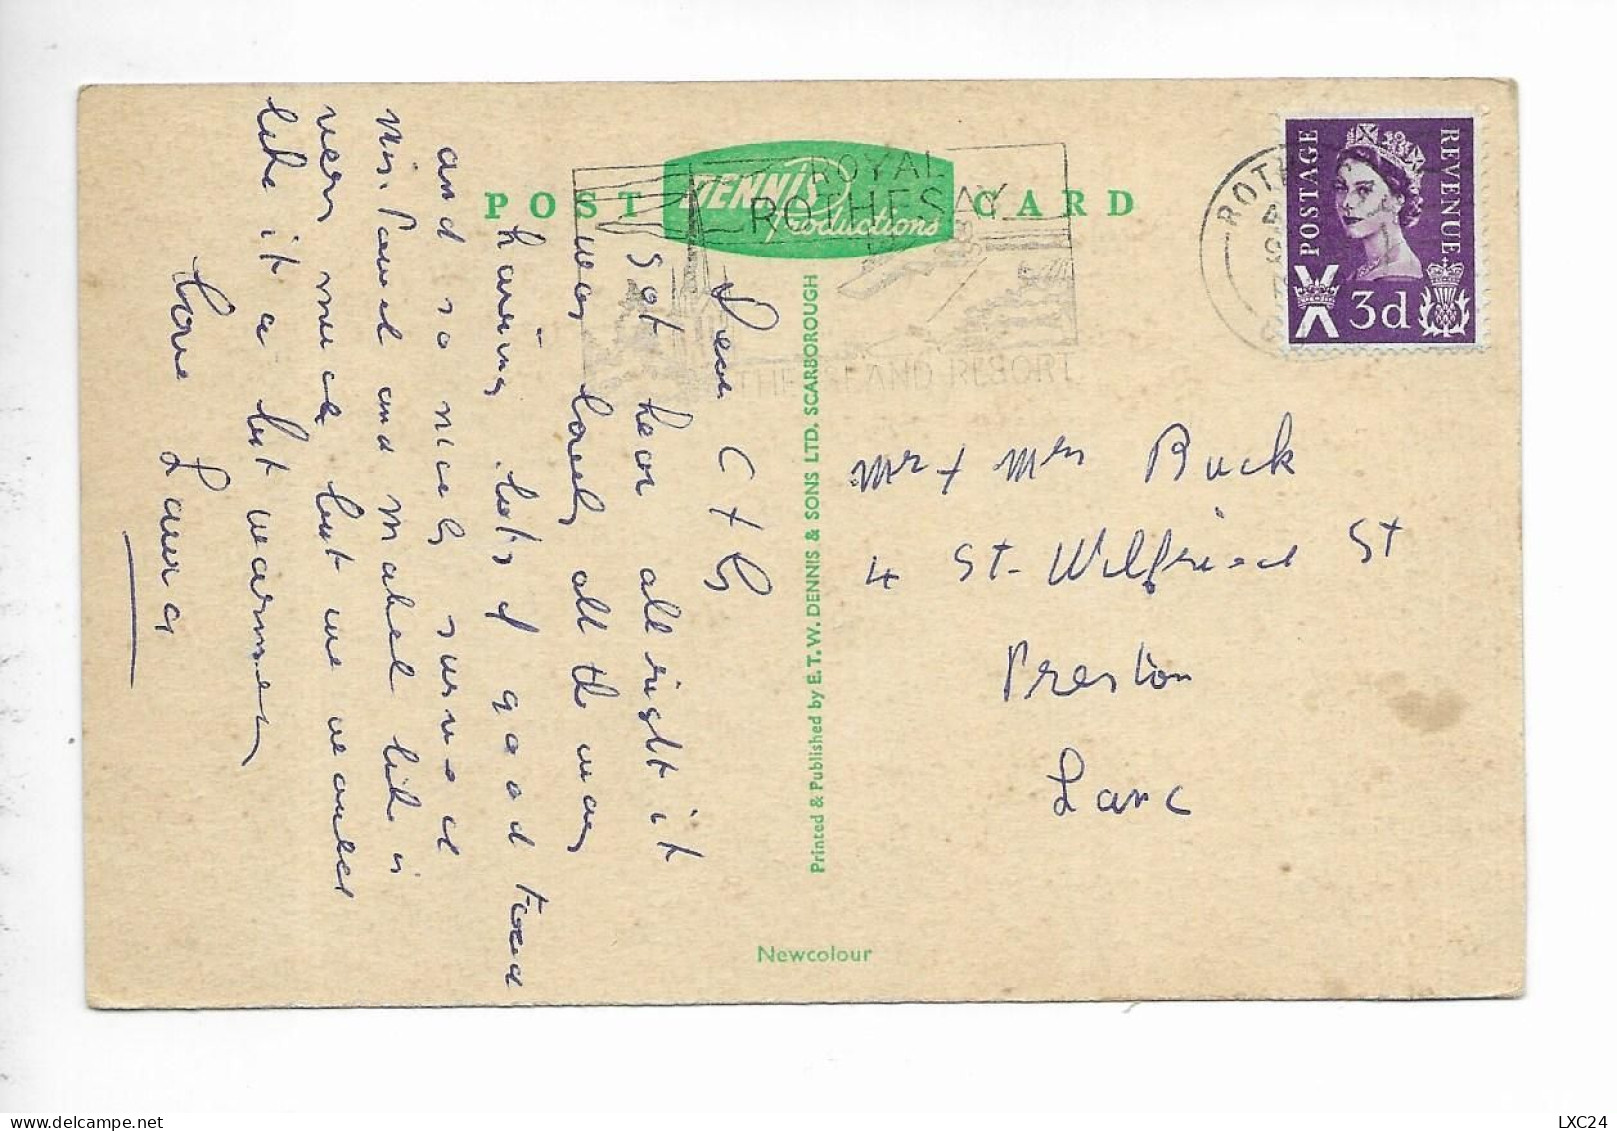 POST CARD
DENNIS
Productions
ROYAL
ROTHESAY
THE ISLAND RESORT
POSTAGE
REVENUE
3d
Dear C + G
Got hear all right it
was lovely all the way
having lots of good food
and so nicely served
Mrs. and Mabel like is
very much but we would
like it a bit warmer
Love Laura
Printed & Published by E. T. W. DENNIS & SONS LTD. SCARBOROUGH
Mr + Mrs Buck
4 St-Wilfried St
Preston
Lanc
Newcolour
LXC24